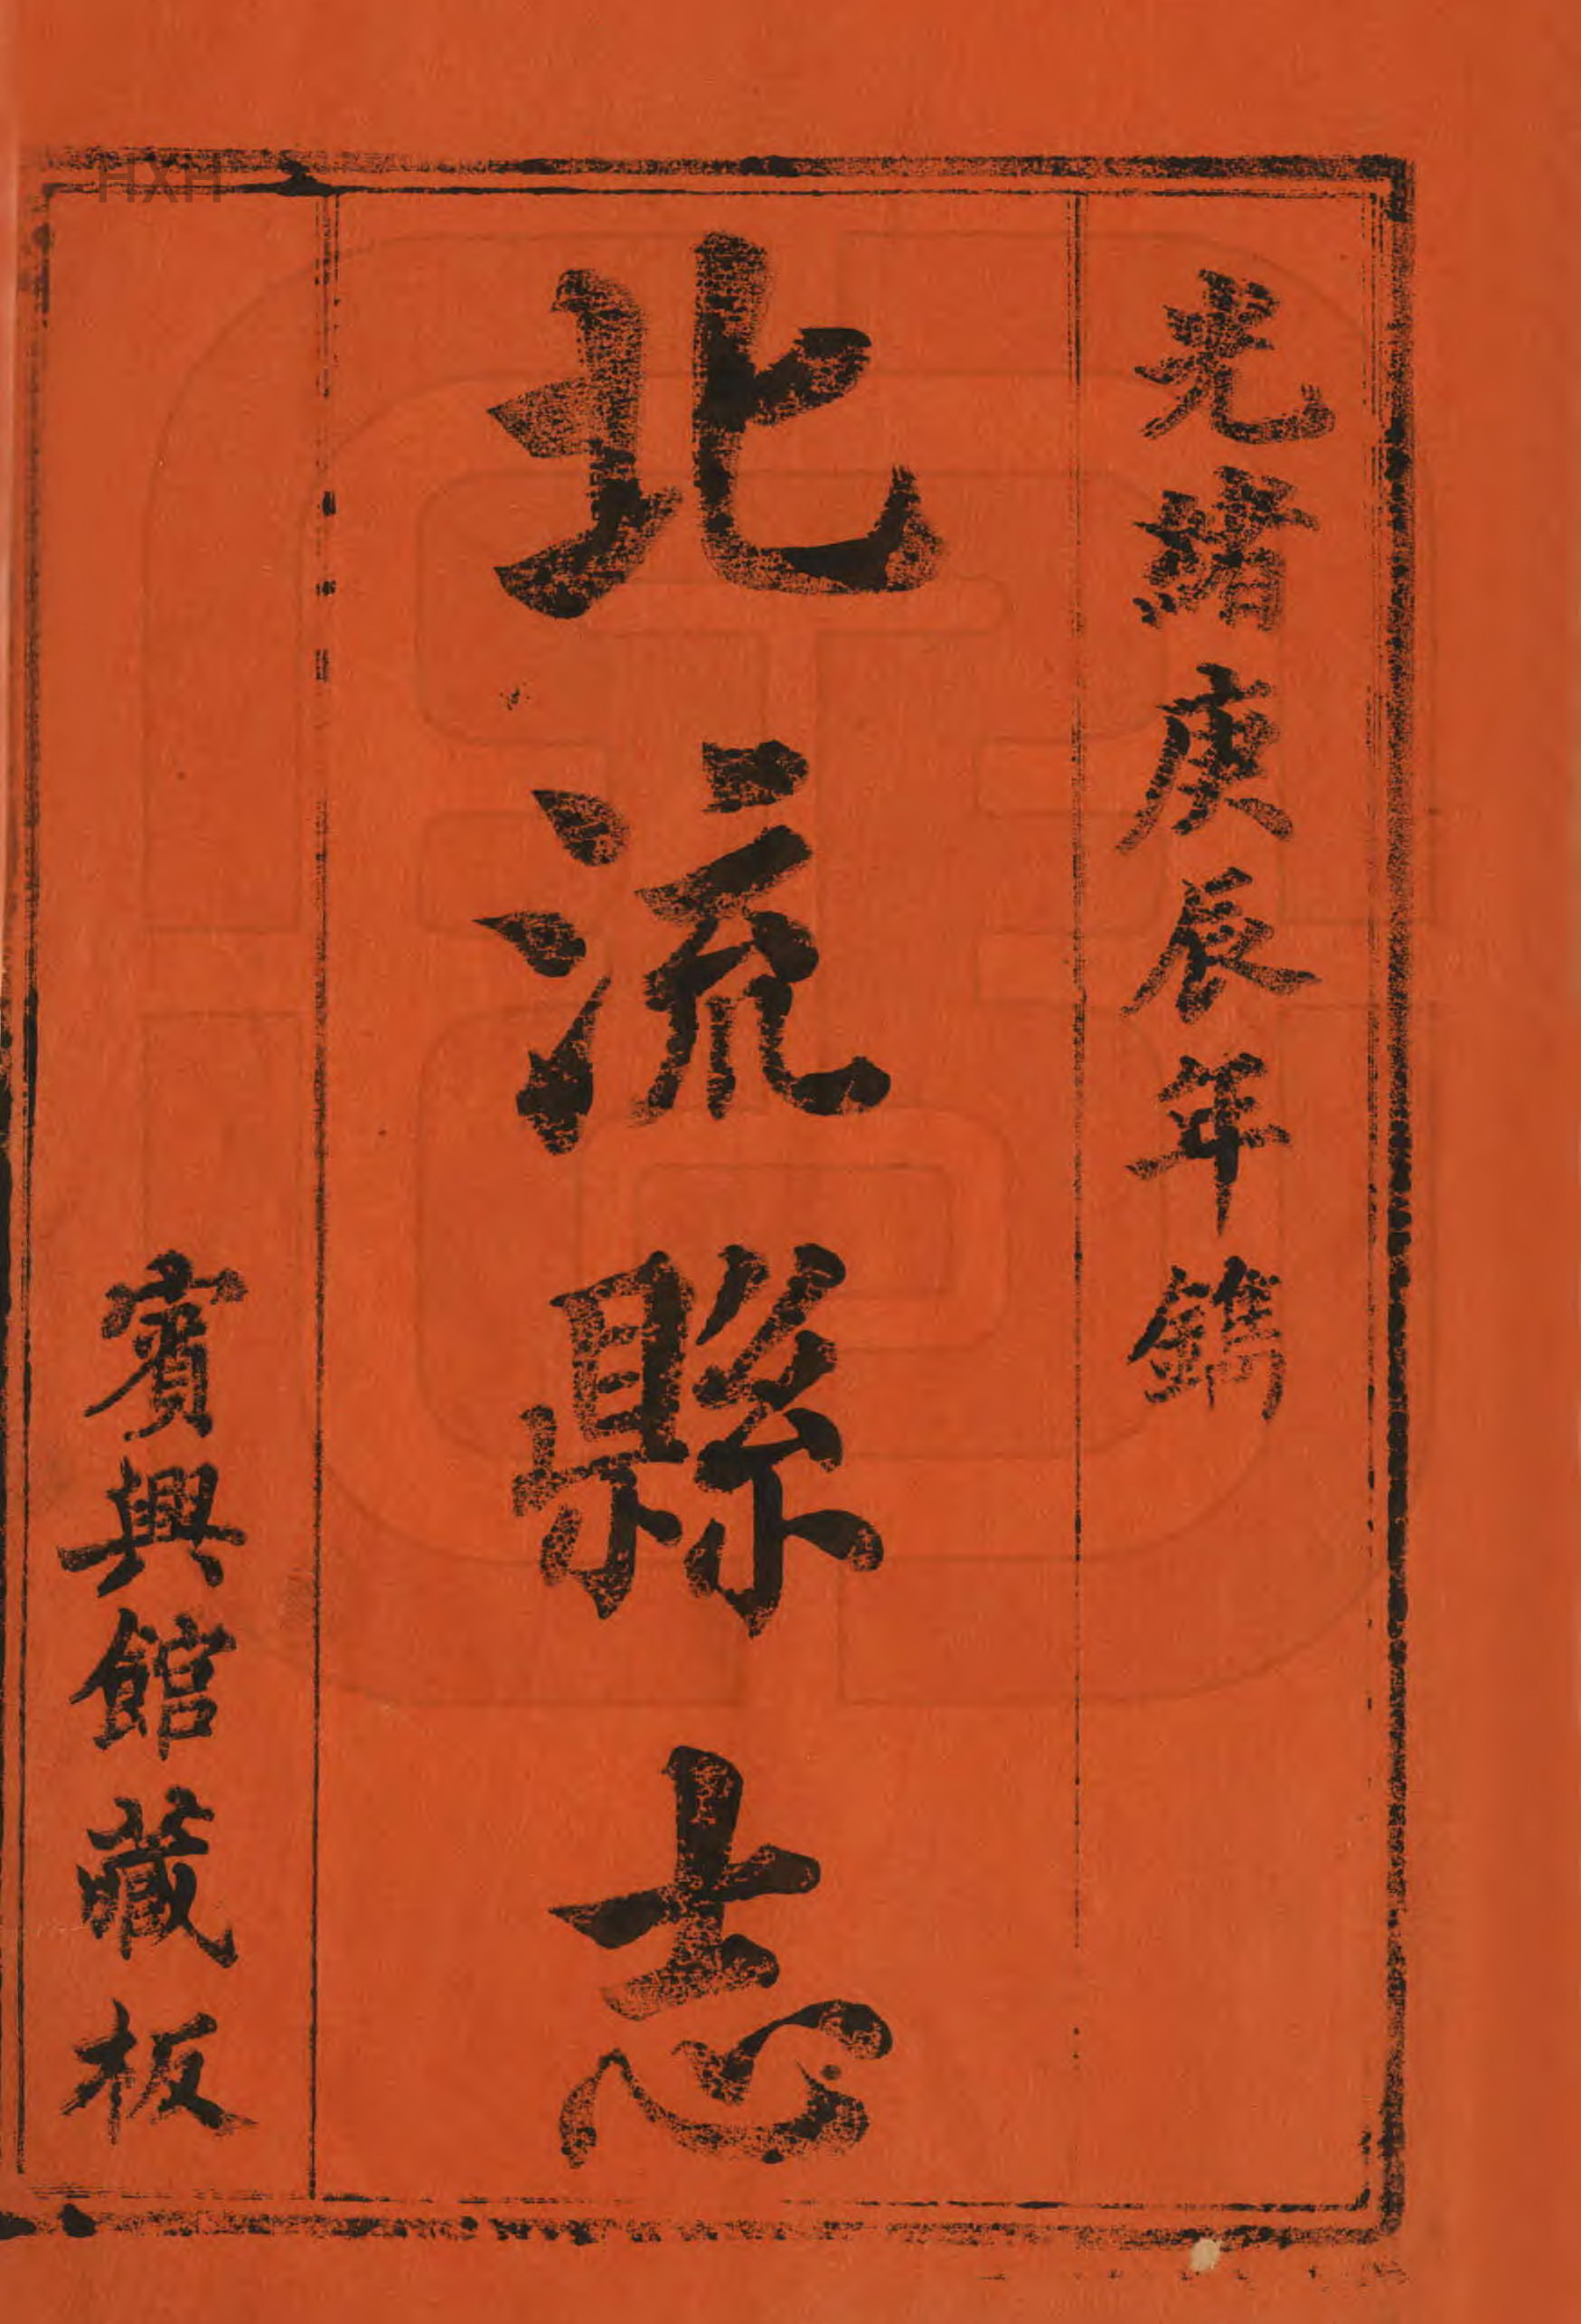 光緒庚辰年鐫
北流縣志
賓興館藏板
HXH